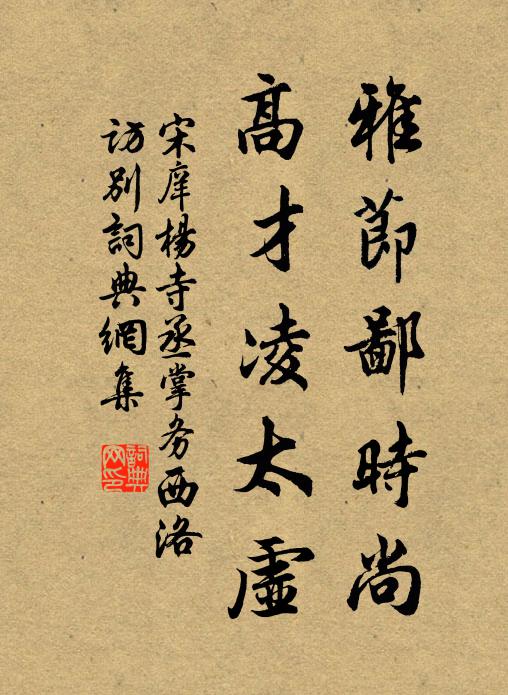 雅節鄙時尚
高才凌太虛
宋庠楊寺丞掌务西洛
訪別詞典網集
詞典
网印